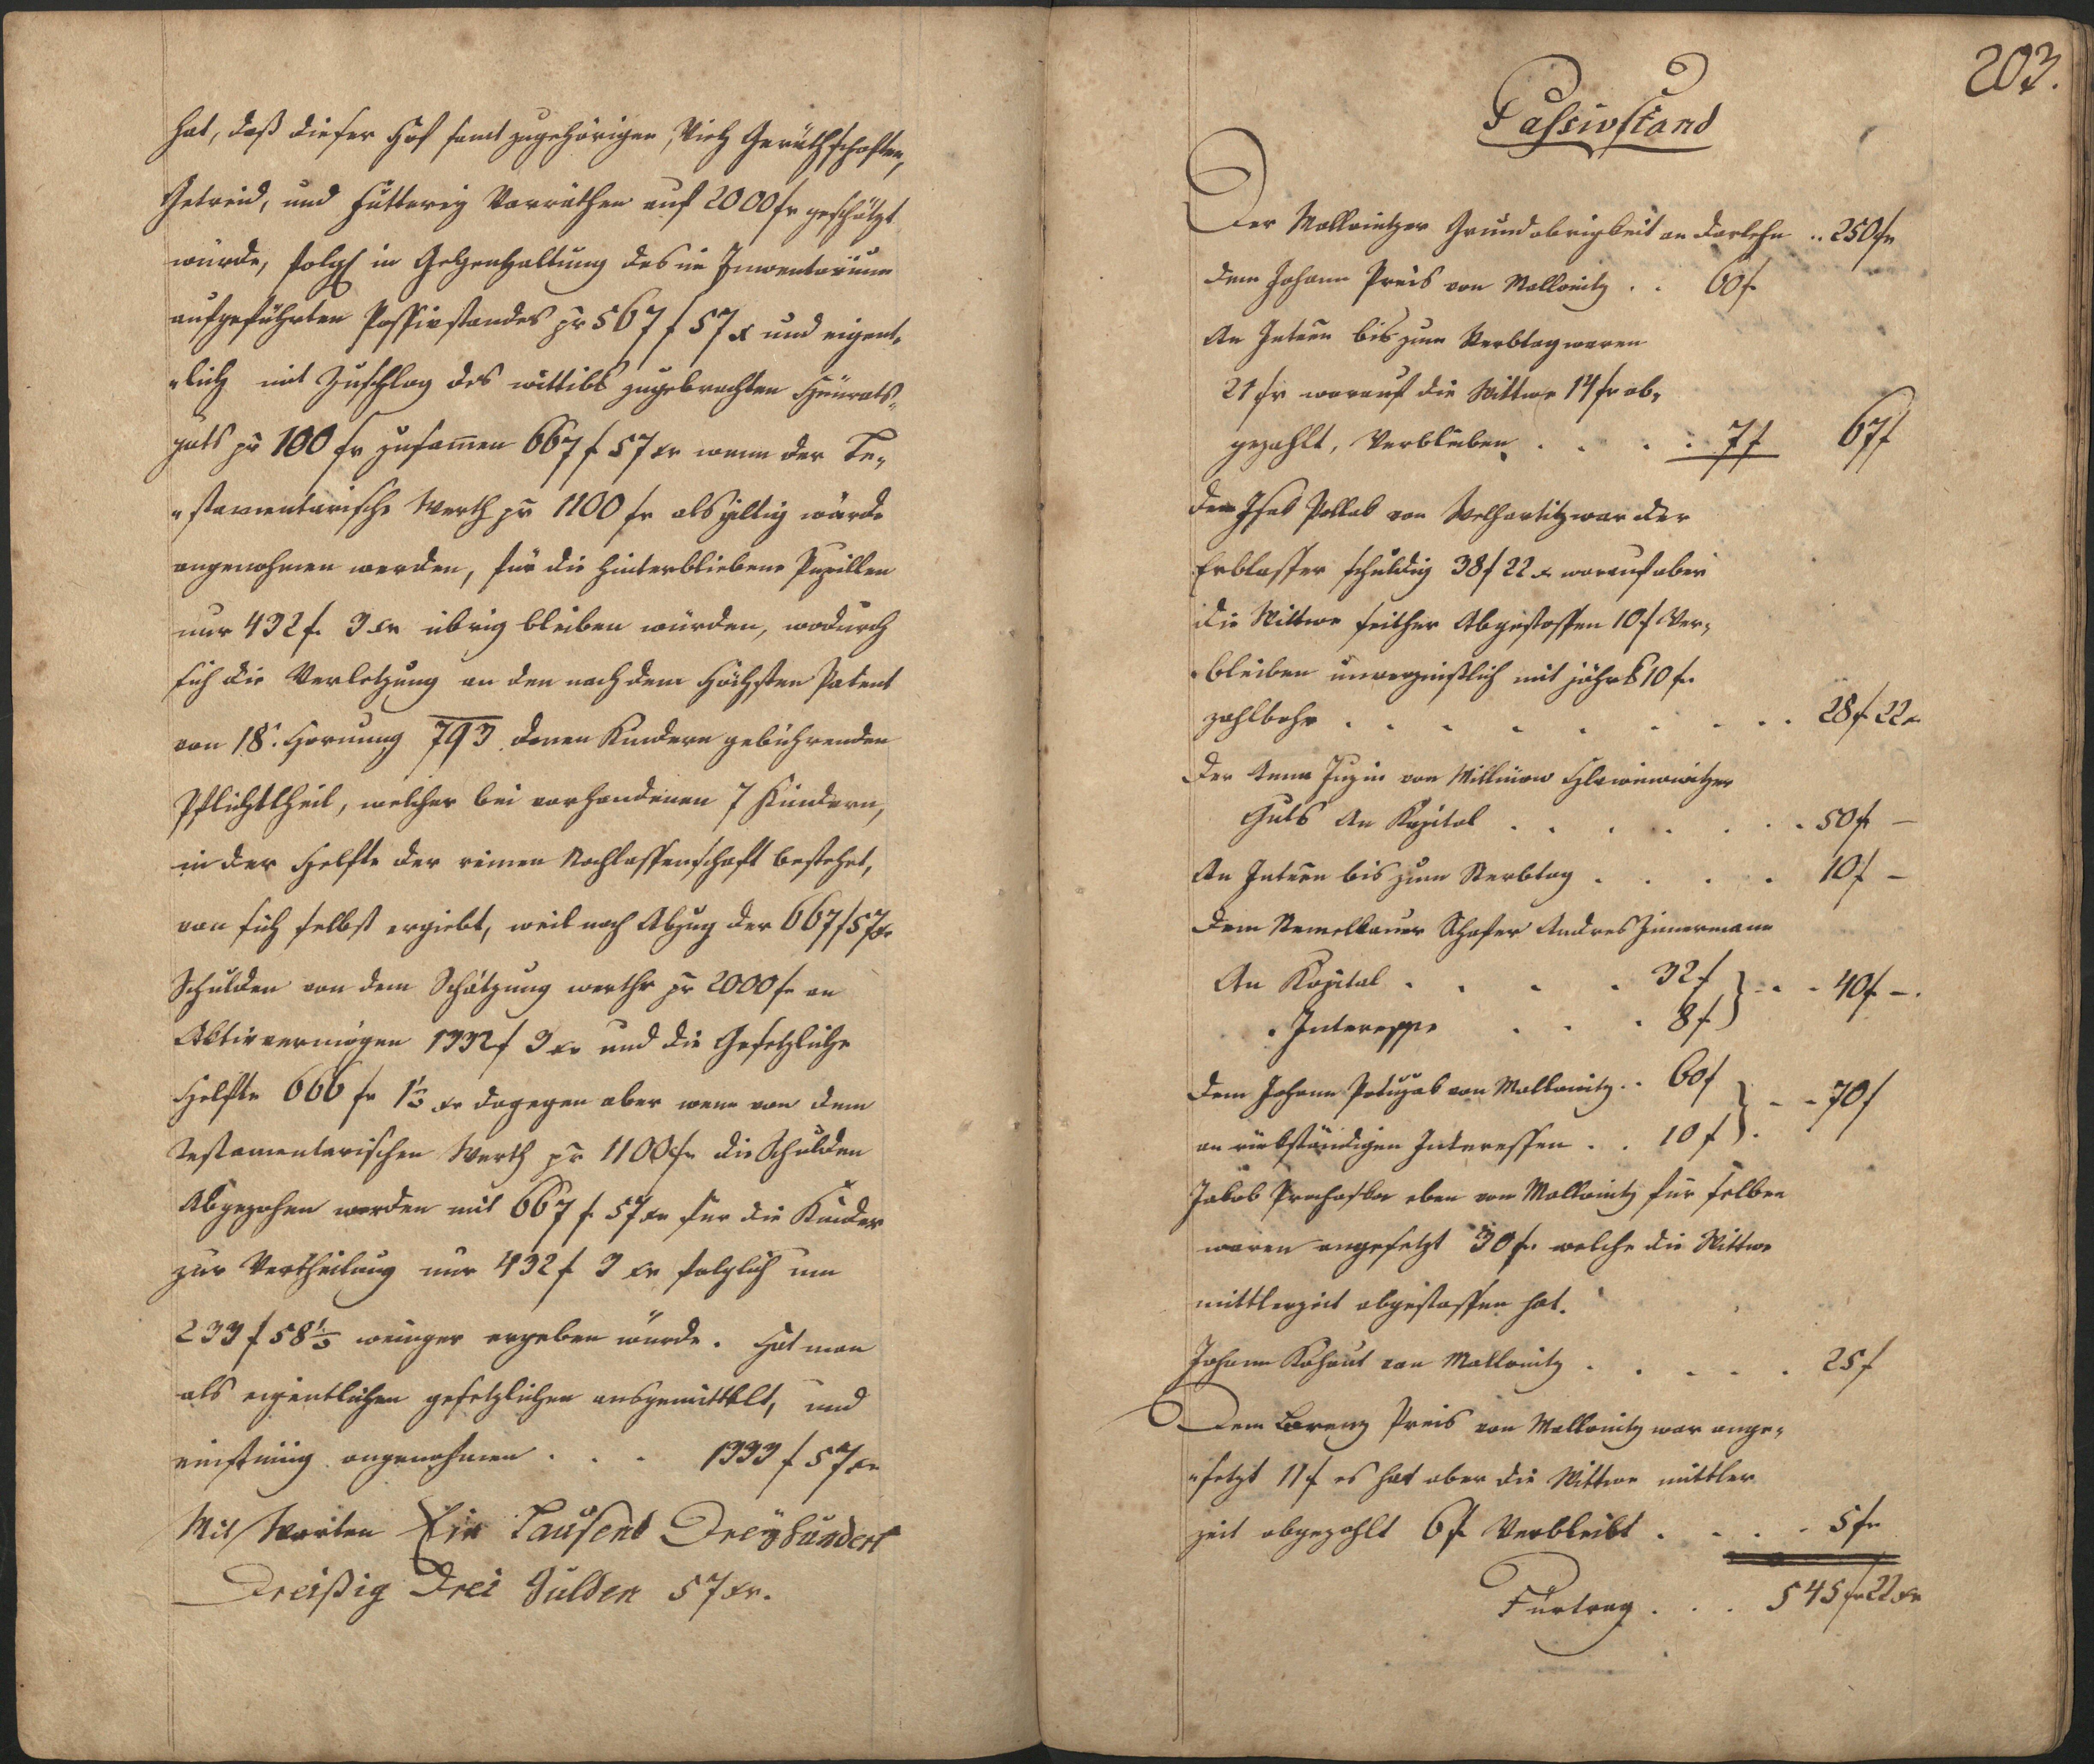 hat, daß dieser Hof samt zugehörigen Vieh Geräthschaften,
Getreid, und Fütterey Vorräthen auf 2000 fr geschätzt
würde, folgl in Gegenhaltung des im Inventarium
aufgeführten Passivstandes pr 567 f 57 x und eigent„
„lich mit Zuschlag des wittibs zugebrachten Heürats„
guts pr 100 fr zusamen 667 f 57 xr wenn der Te„
„stamentarische Werth pr 1100 fr als giltig würde
angenohmen werden, für die hinterbliebene Pupillen
nur 432 f. 3 xr übrig bleiben würden, wodurch
sich die Verletzung an den nach dem Höchsten Patent
von 18t. Hornung 793 denen Kindern gebührenden
Pflichttheil, welcher bei vorhandenen 7 Kindern,
in der Helfte der reinen Nachlassenschaft bestehet,
von sich selbst ergiebt, weil nach Abzug der 667 f 57 xr
Schulden von dem Schätzung werthe pr 2000 fr an
Aktivvermögen 1332 f 3 xr und die Gesetzliche
Helfte 666 fr 1½ xr dagegen aber wenn von dem
Testamentarischen Werth pr 1100 fr die Schulden
Abgezohen werden mit 667 f. 57 xr für die Kinder
zur Vertheilung nur 432 f 3 xr folglich um
233 f 58½ weniger ergeben würde. Hat man
als eigentlichen gesetzlichen ausgemittelt, und
einstimig angenohmen . . . 1333 f 57 xr
Mit Worten Ein Tausend Dreyhundert
Dreißig Drei Gulden 57 xr.
203.
Passivstand
Der Mallonitzer Grundobrigkeit an Darlehn .. 250 fr
dem Johann Preis von Mallonitz . . 60 f
An Inteen bis zum Sterbtag waren
21 fr worauf die Wittwe 14 fr ab„
gezahlt, Verblieben . . . . 7 f 67 f
dem Isak Pollak von Welhartitz war der
Erblasser schuldig 38 f 22 x worauf aber
die Wittwe seither Abgestossen 10 f Ver„
bleiben mit jährl 10 fr
zahlbahr . . . . . . . . 28 f 22 x
Der Anna von
Guts An Kapital . . . . . . . 50 fr –
An Inteen bis zum Sterbtag . . . . 10 f –
dem Schafer Andres Zimermann
An Kapital . . . . 32 f } . . . 40 f –.
„ Interesse . . . 8 f
dem Johann von Mallonitz .. 60 f } . . 70 f
an rückständigen Interessen . . 10 f
Jakob eben von Mallonitz für selben
waren angesetzt 30 fr welche die Wittwe
mittlerzeit abgestossen hat.
Johann Kohout von Mallonitz . . . . . 25 f
Dem Lorenz Preis von Mallonitz war ange„
„setzt 11 f es hat aber die Wittwe mittler
zeit abgezahlt 6 f Verbleibt . . . . 5 fr
Fürtrag . . . 545 fr 22 xr